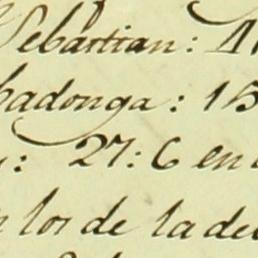 Sebastian: 1
badonga: 15
: 27: 6 en
los de la de